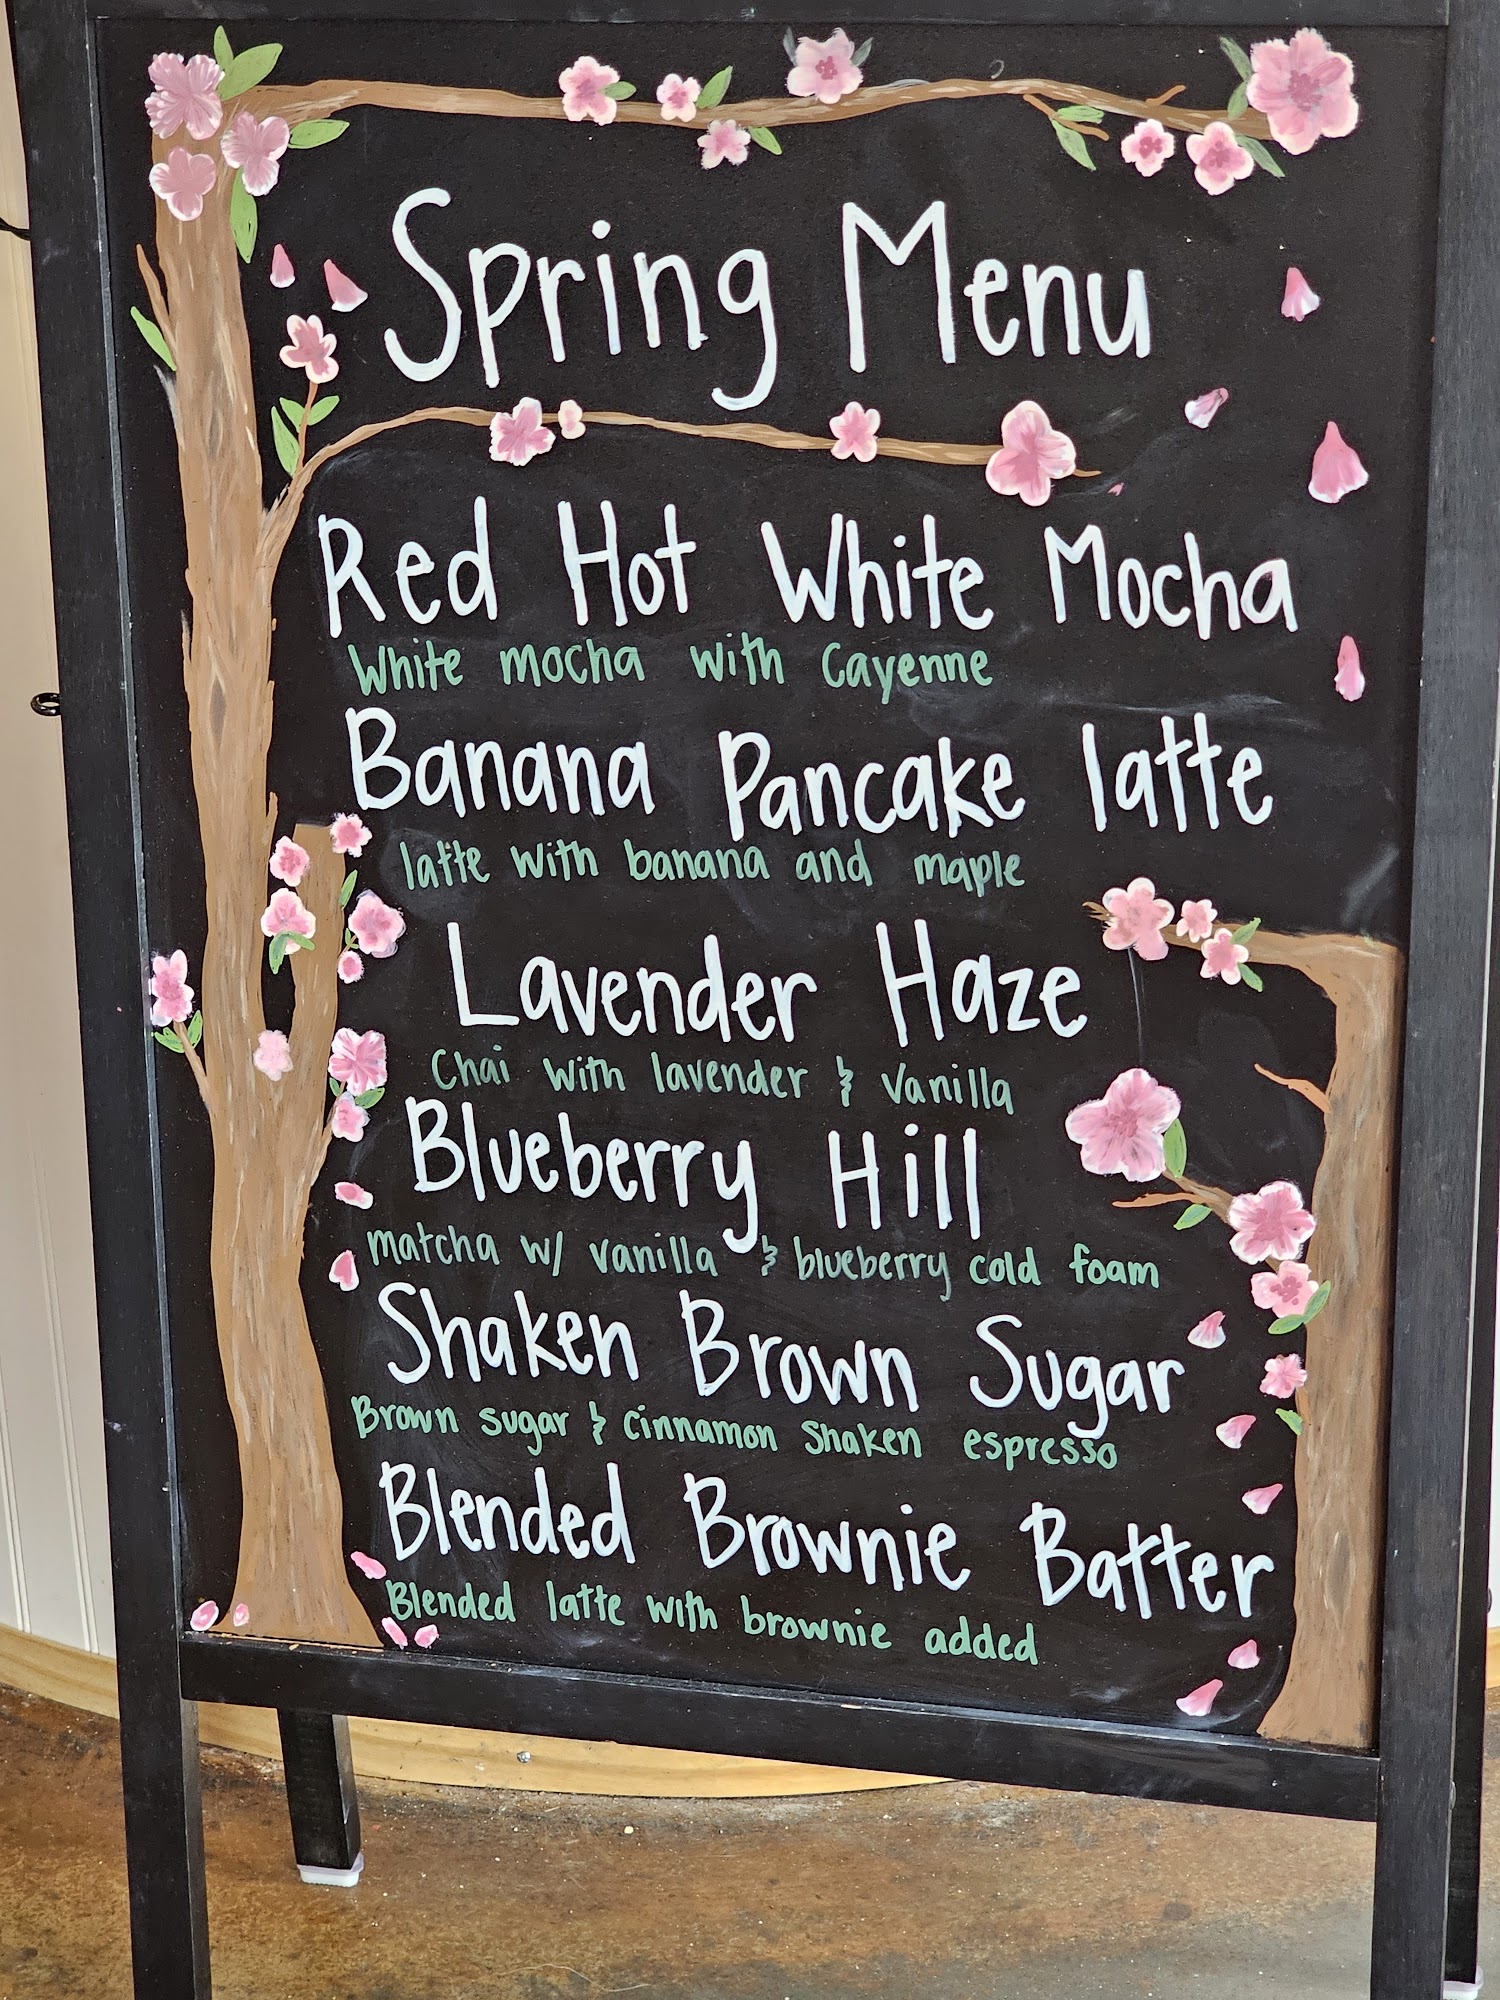 Spring Menu
Red Hot White Mocha
White mocha with Cayenne
Banana Pancake latte
latte with banana and maple
Lavender Haze
Chai with lavender & Vanilla
Blueberry Hill
matcha w/ vanilla & blueberry cold foam
Shaken Brown Sugar
Brown sugar & cinnamon shaken espresso
Blended Brownie Batter
Blended latte with brownie added